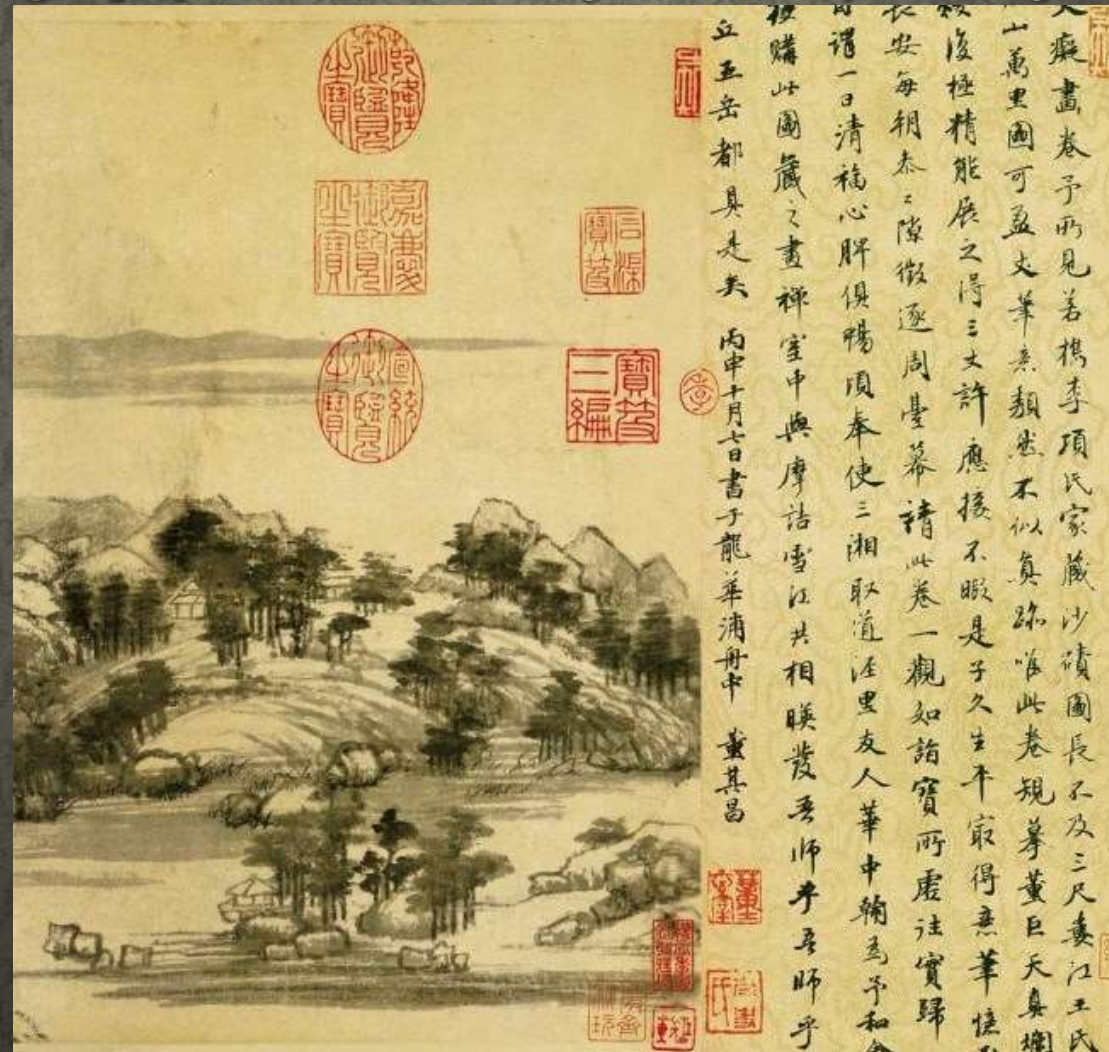 大癡畫卷予所見若檇李項氏家藏沙磧圖長不及三尺婁江王氏
山萬里圖可盈丈筆意頹然不似真跡唯此卷規摹董巨天真爛
熳復極精能展之得三丈許應接不暇是子久生平最得意筆憶
長安每朝參之隙徵逐周臺幕請此卷一觀如詣寶所虛往實歸
自謂一日清福心脾俱暢頃奉使三湘取道涇里友人華中翰為予和會
獲購此圖藏之畫禪室中與摩詰雪江共相暎發吾師乎吾師乎
丘五岳都具是矣 丙申十月七日書于龍華浦舟中 董其昌
石渠寶笈
寶笈三編
乾隆御覽之寶
嘉慶御覽之寶
宣統御覽之寶